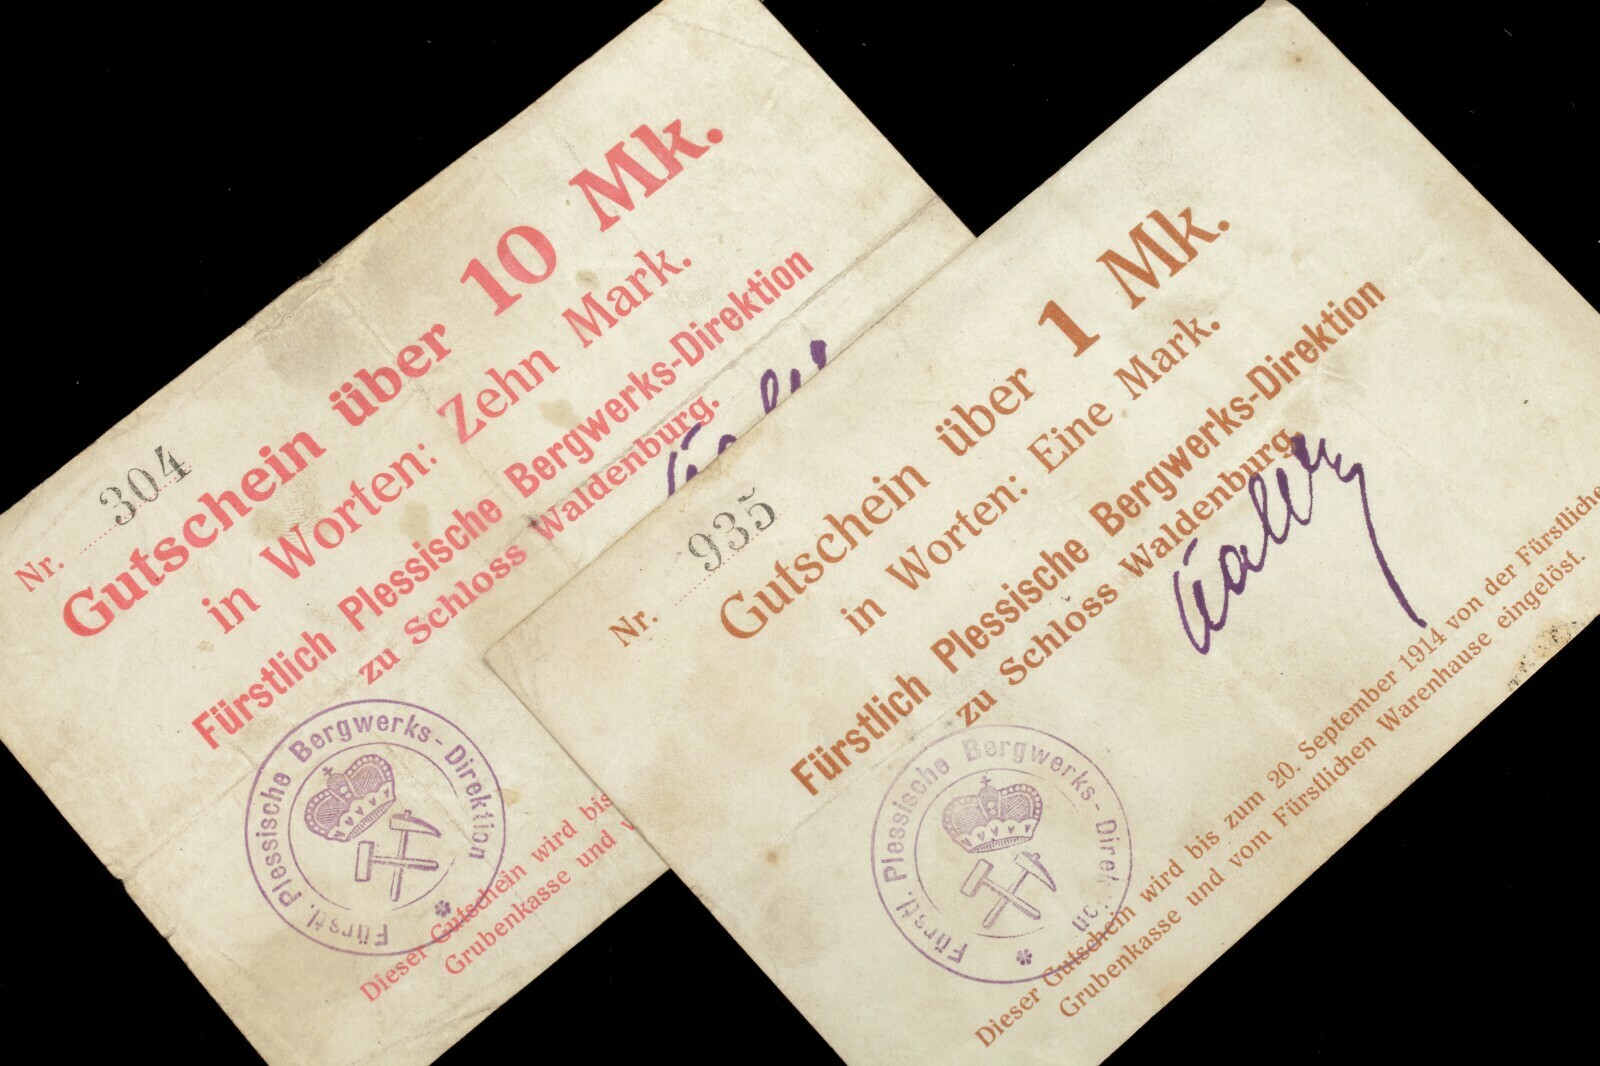 Nr. 304
Gutschein über 10 Mk.
in Worten: Zehn Mark.
Fürstlich Plessische Bergwerks-Direktion
zu Schloss Waldenburg.
Fürstl. Plessische Bergwerks-Direktion
Dieser Gutschein wird bis
Grubenkasse und v
Nr. 935
Gutschein über 1 Mk.
in Worten: Eine Mark.
Fürstlich Plessische Bergwerks-Direktion
zu Schloss Waldenburg.
Fürstl. Plessische Bergwerks-Direktion
Dieser Gutschein wird bis zum 20. September 1914 von der Fürstliche
Grubenkasse und vom Fürstlichen Warenhause eingelöst.